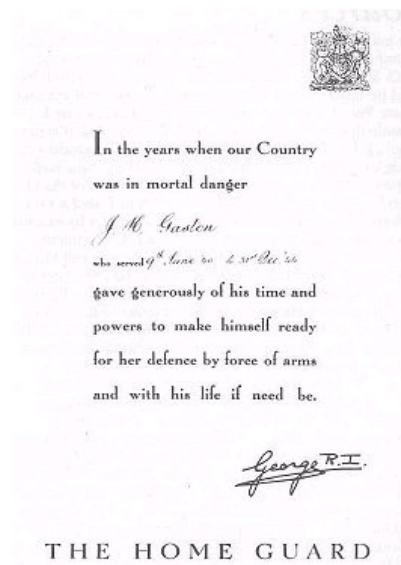 In the years when our Country
was in mortal danger
J. M. Gaston
who served 9th June '40 to 31st Dec '44
gave generously of his time and
powers to make himself ready
for her defence by force of arms
and with his life if need be.
George R.I.
THE HOME GUARD